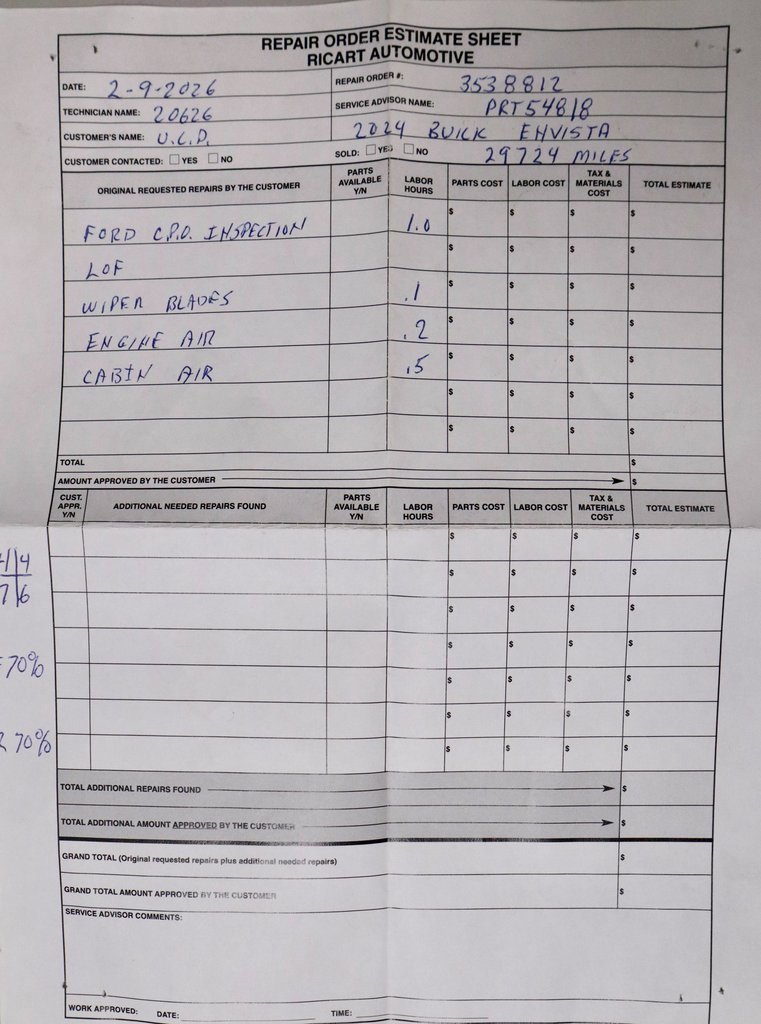 REPAIR ORDER ESTIMATE SHEET
RICART AUTOMOTIVE
DATE: 2-9-2026 REPAIR ORDER #: 3538812
TECHNICIAN NAME: 20626 SERVICE ADVISOR NAME: PRT54818
CUSTOMER'S NAME: U.C.D. 2024 BUICK ENVISTA
CUSTOMER CONTACTED: YES NO SOLD: YES NO 29724 MILES
ORIGINAL REQUESTED REPAIRS BY THE CUSTOMER PARTS AVAILABLE Y/N LABOR HOURS PARTS COST LABOR COST TAX & MATERIALS COST TOTAL ESTIMATE
FORD C.P.O. INSPECTION 1.0 $ $ $ $
LOF $ $ $ $
WIPER BLADES .1 $ $ $ $
ENGINE AIR .2 $ $ $ $
CABIN AIR .5 $ $ $ $
$ $ $ $
$ $ $ $
TOTAL $
AMOUNT APPROVED BY THE CUSTOMER $
CUST. APPR. Y/N ADDITIONAL NEEDED REPAIRS FOUND PARTS AVAILABLE Y/N LABOR HOURS PARTS COST LABOR COST TAX & MATERIALS COST TOTAL ESTIMATE
$ $ $ $
4 $ $ $ $
7 6 $ $ $ $
$ $ $ $
70% $ $ $ $
$ $ $ $
70% $ $ $ $
TOTAL ADDITIONAL REPAIRS FOUND $
TOTAL ADDITIONAL AMOUNT APPROVED BY THE CUSTOMER $
GRAND TOTAL (Original requested repairs plus additional needed repairs) $
GRAND TOTAL AMOUNT APPROVED BY THE CUSTOMER $
SERVICE ADVISOR COMMENTS:
WORK APPROVED: DATE: TIME: